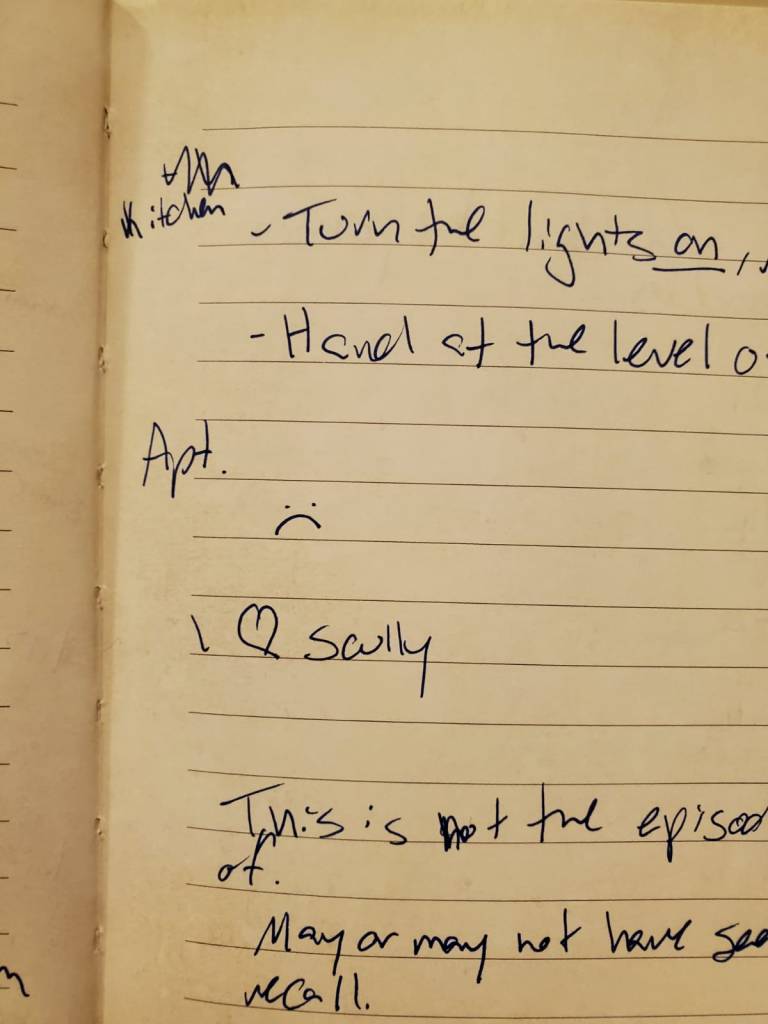 Kitchen
- Turn the lights on,
- Hand at the level
Apt.
:(
I ♡ Scully
This is not the
of.
May or may not have
recall.